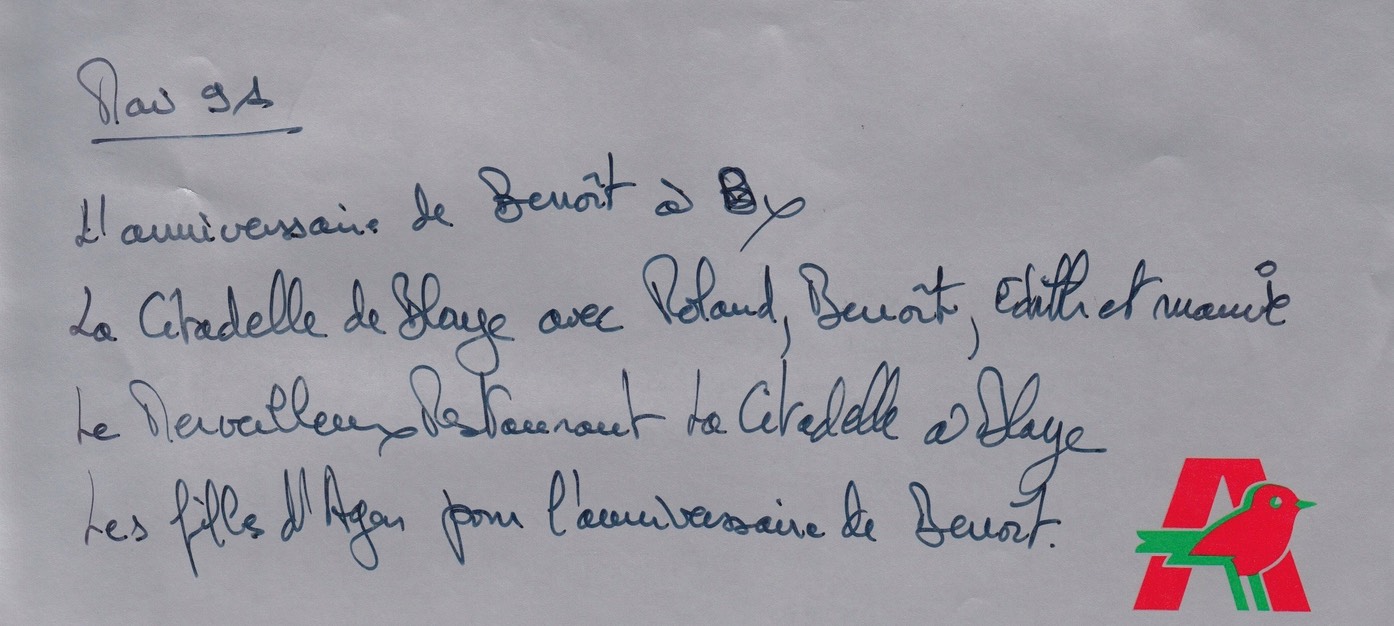 Mai 91
L'anniversaire de Benoît à Bx
La Citadelle de Blaye avec Roland, Benoît, Edith et mamie
Le Merveilleux Restaurant La Citadelle à Blaye
Les filles d'Agen pour l'anniversaire de Benoît.